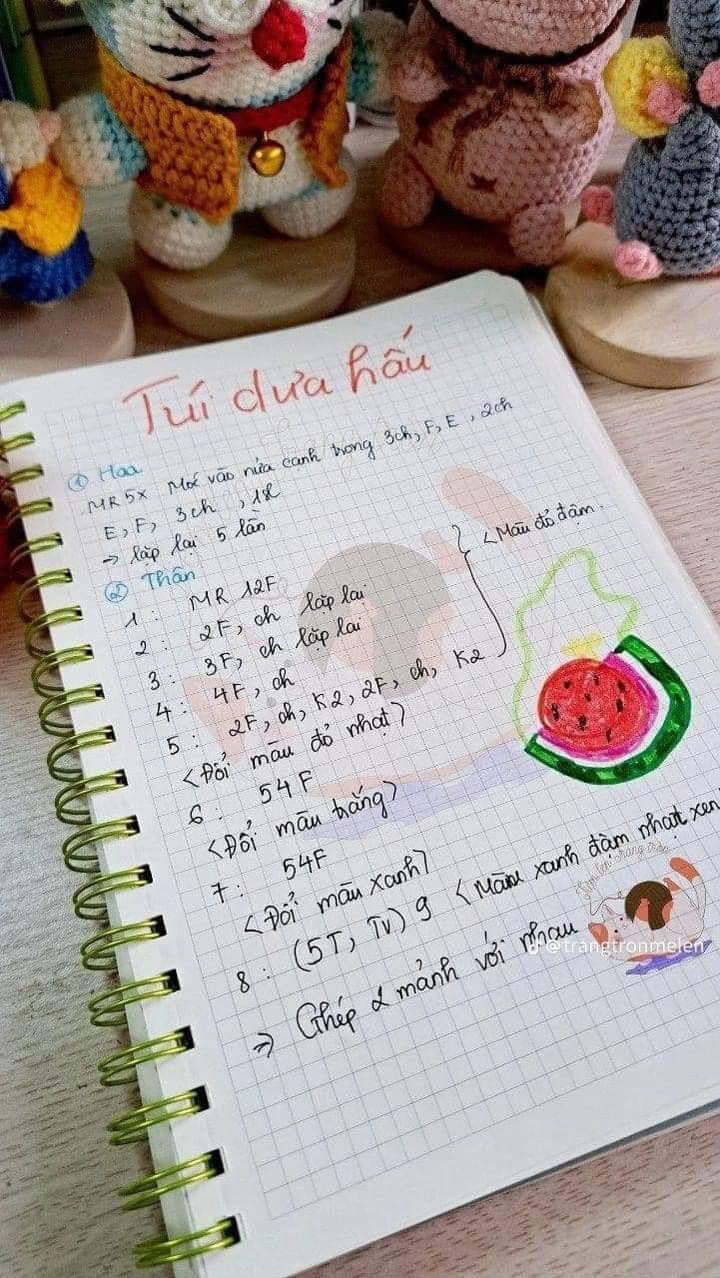 Túi dưa hấu
① Hoa
MR 5X Móc vào nửa canh trong 3ch, F, E, 2ch
E, F, 3ch, 1sl
→ lặp lại 5 lần
② Thân
1: MR 12F
2: 2F, ch lặp lại
3: 3F, ch lặp lại
4: 4F, ch
5: 2F, ch, K2, 2F, ch, K2
<Màu đỏ đậm.
<Đổi màu đỏ nhạt>
6: 54F
<Đổi màu trắng>
7: 54F
<Đổi màu xanh>
8: (5T, TV) 9 <Màu xanh đậm nhạt xen
⇒ Ghép 2 mảnh với nhau
@trangtronmelen